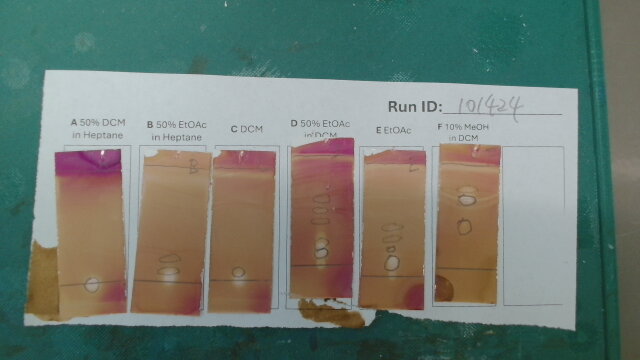 Run ID: 101424
A 50% DCM
in Heptane
B 50% EtOAc
in Heptane
C DCM
D 50% EtOAc
in DCM
E EtOAc
F 10% MeOH
in DCM